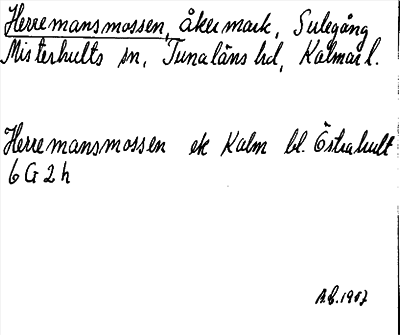 Herremansmossen, åkermark, Sulegång
Misterhults sn, Tunaläns hd, Kalmar l.
Herremansmossen ek Kalm bl. Östrahult
6 G 2 h